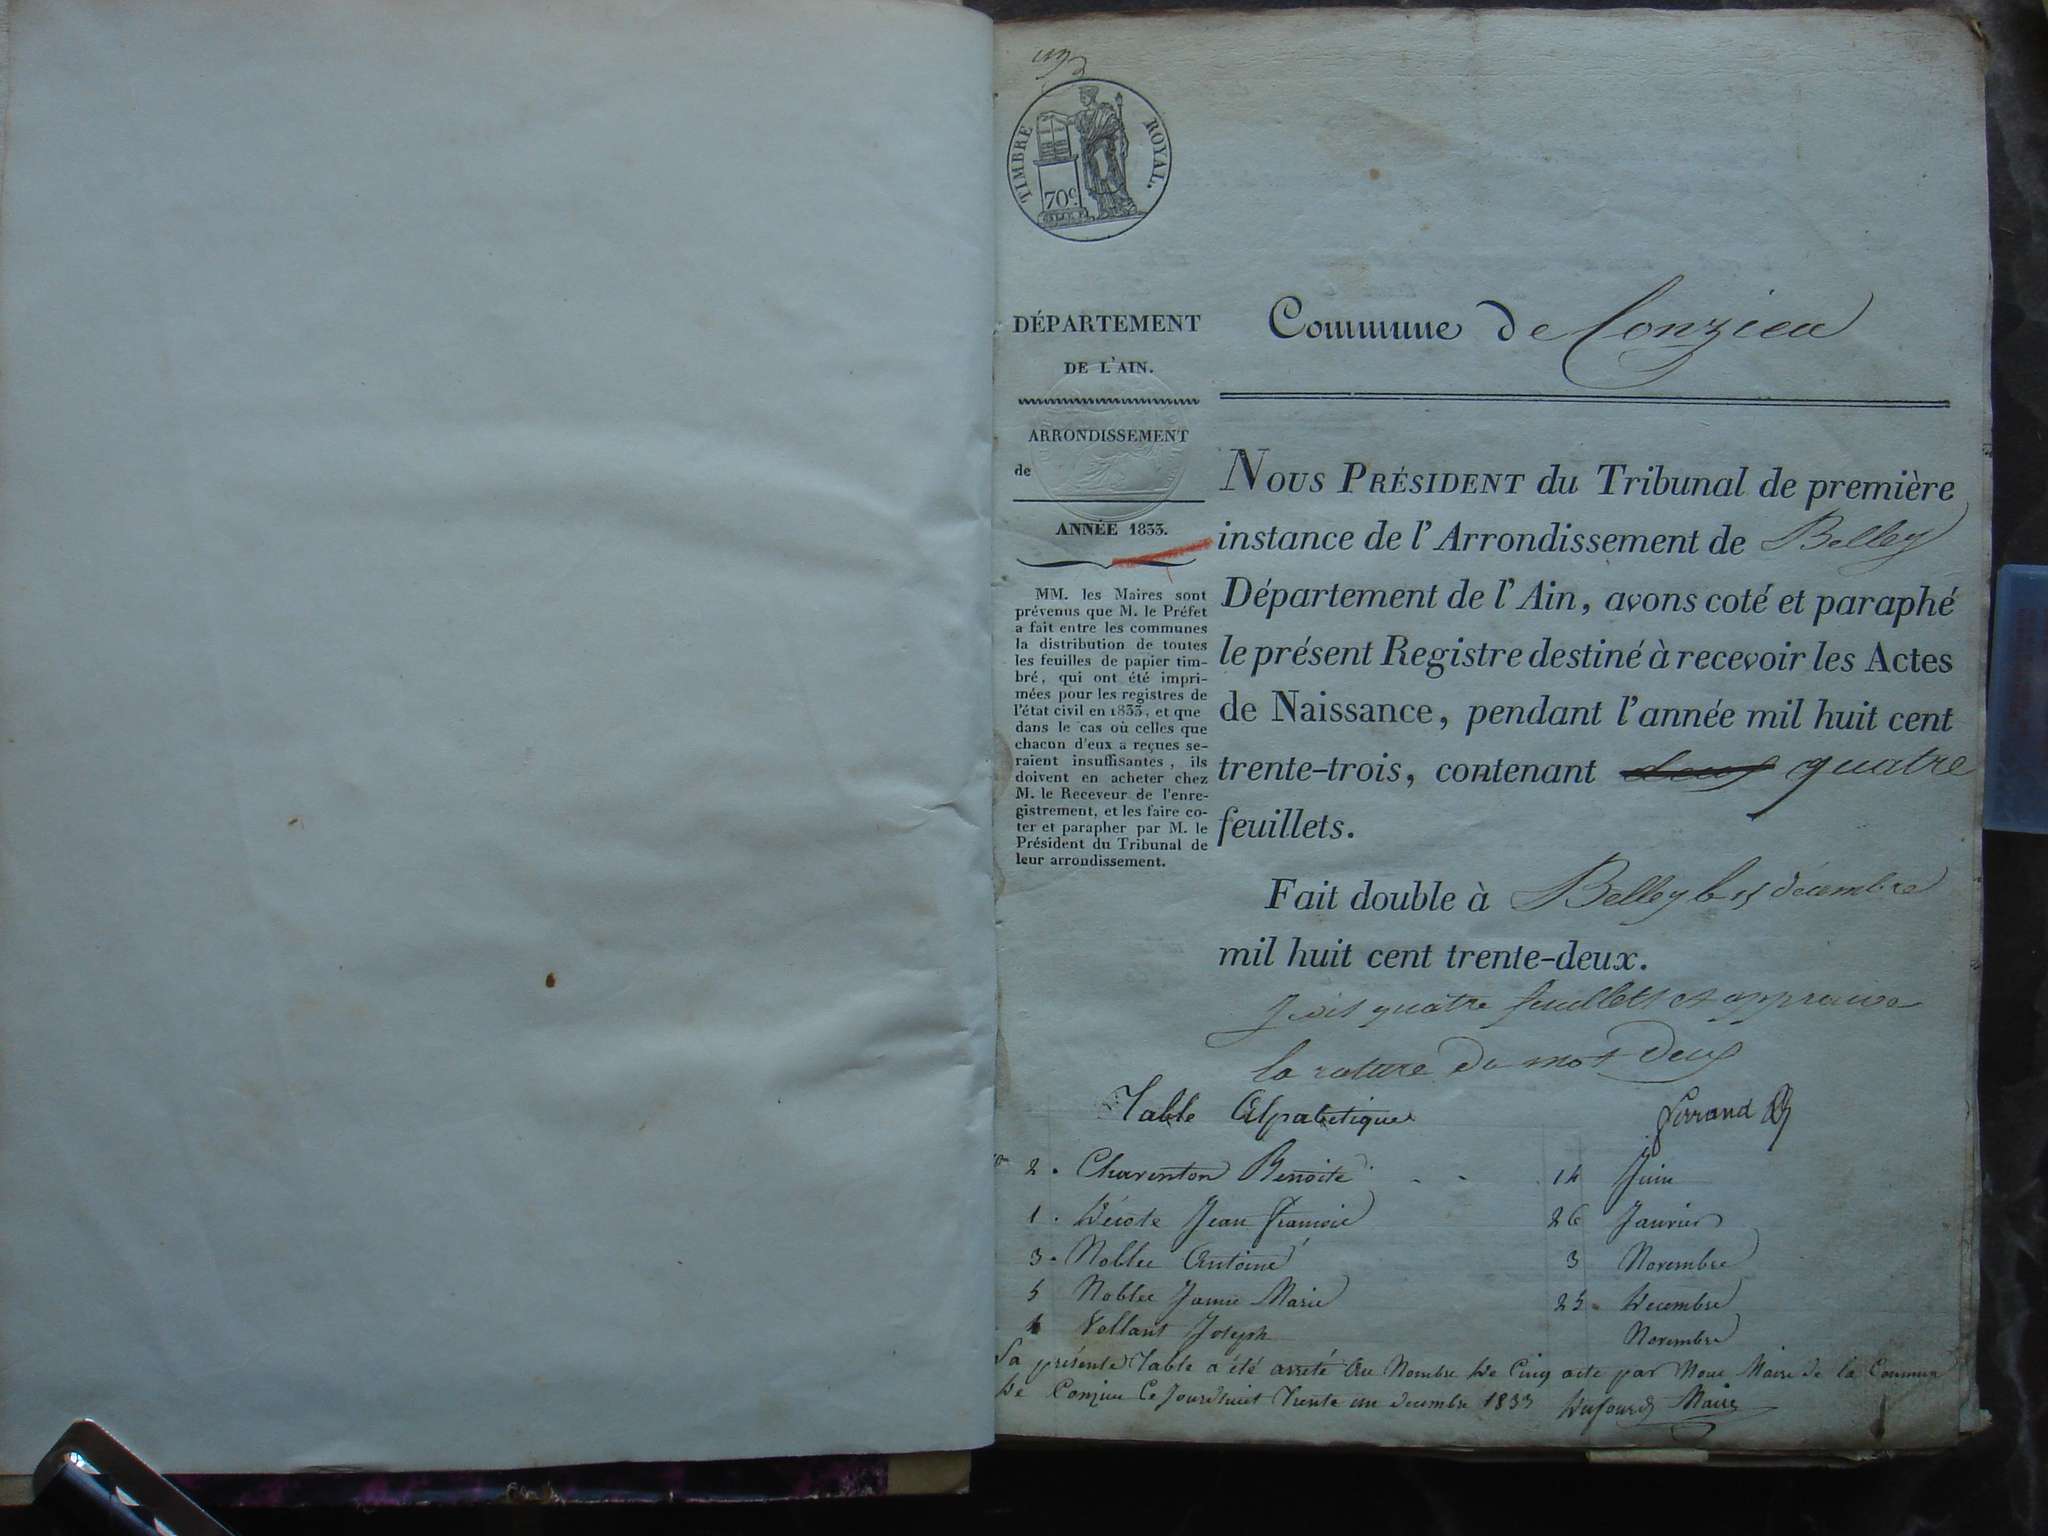 TIMBRE ROYAL.
70c.
DÉPARTEMENT
DE L'AIN.
ARRONDISSEMENT
de
ANNÉE 1833.
MM. les Maires sont
prévenus que M. le Préfet
a fait entre les communes
la distribution de toutes
les feuilles de papier tim-
bré, qui ont été impri-
mées pour les registres de
l'état civil en 1833, et que
dans le cas où celles que
chacun d'eux a reçues se-
raient insuffisantes, ils
doivent en acheter chez
M. le Receveur de l'enre-
gistrement, et les faire co-
ter et parapher par M. le
Président du Tribunal de
leur arrondissement.
Commune de Conzieu
NOUS PRÉSIDENT du Tribunal de première
instance de l'Arrondissement de Belley
Département de l'Ain, avons coté et paraphé
le présent Registre destiné à recevoir les Actes
de Naissance, pendant l'année mil huit cent
trente-trois, contenant deux quatre
feuillets.
Fait double à Belley le 15 décembre
mil huit cent trente-deux.
Je dis quatre feuillets et approuve
la rature du mot deux
Table Alpabetique
Ferrand
2. Charenton Benoite 14 Juin
1. Décote Jean François 26 Janvier
3. Noblec Antoine 3 Novembre
5 Noblec Marie 25 Decembre
4 Vellant Joseph Novembre
La présente Table a été arreté Au Nombre De Cinq acte par Nous Maire de la Commun
De Conzieu Ce Jourdhuit Trente un decembre 1833 Dufour Maire